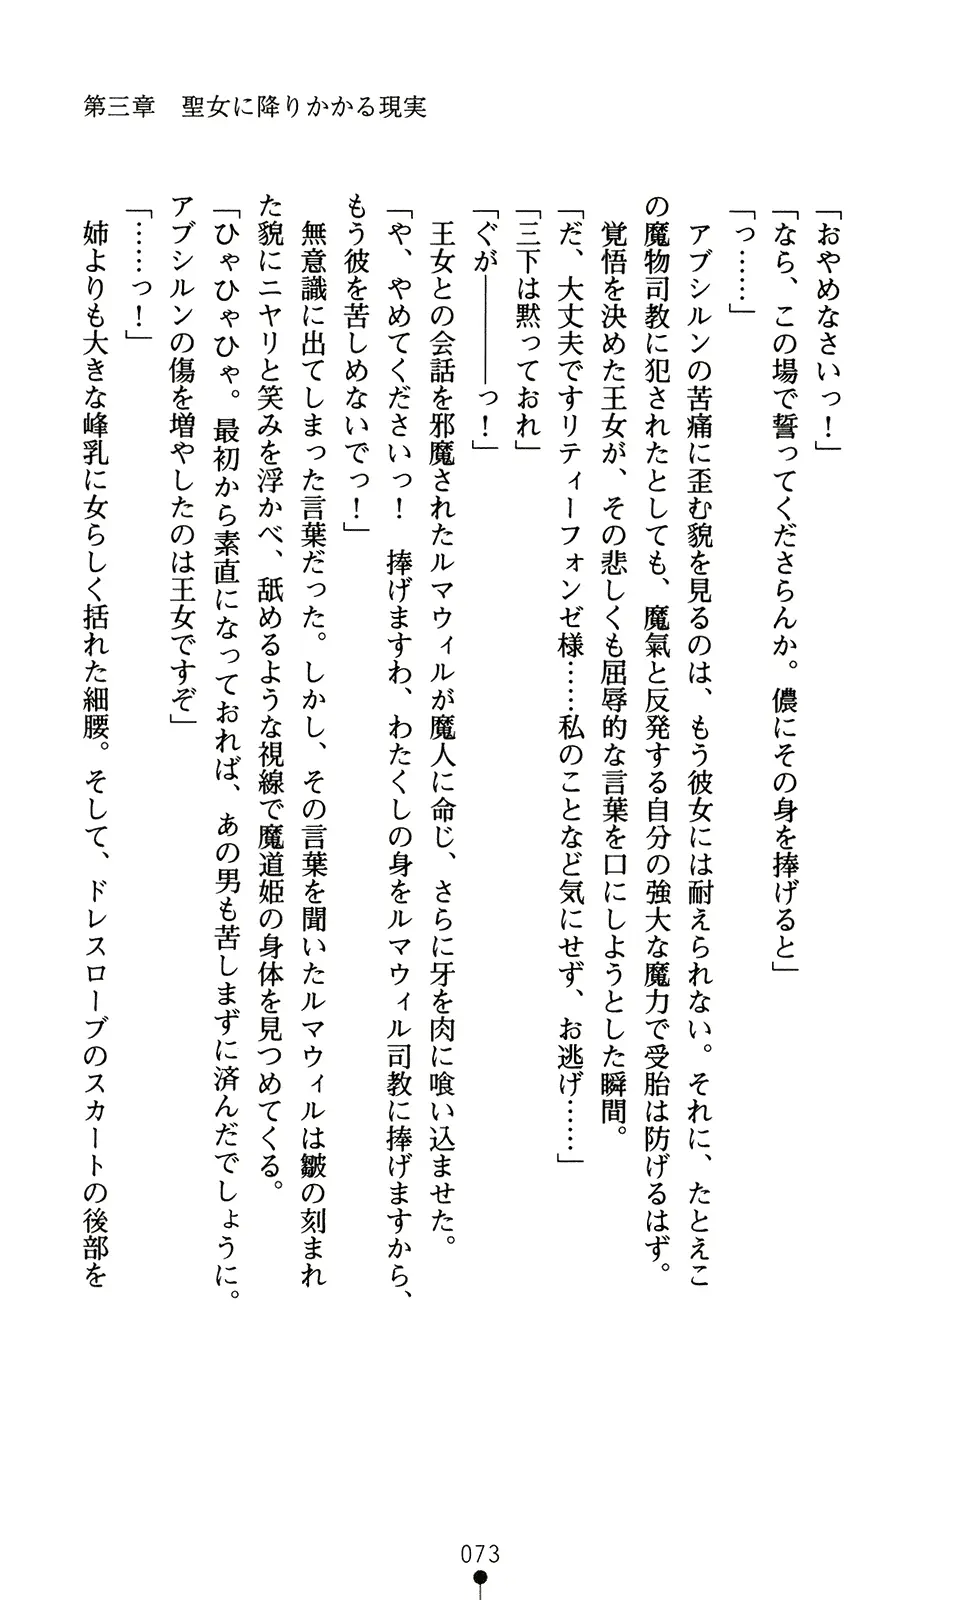 第三章　聖女に降りかかる現実
「おやめなさいっ！」
「なら、この場で誓ってくださらんか。儂にその身を捧げると」
「っ……」
　アブシルンの苦痛に歪む貌を見るのは、もう彼女には耐えられない。それに、たとえこ
の魔物司教に犯されたとしても、魔氣と反発する自分の強大な魔力で受胎は防げるはず。
　覚悟を決めた王女が、その悲しくも屈辱的な言葉を口にしようとした瞬間。
「だ、大丈夫ですリティーフォンゼ様……私のことなど気にせず、お逃げ……」
「三下は黙っておれ」
「ぐが――――っ！」
　王女との会話を邪魔されたルマウィルが魔人に命じ、さらに牙を肉に喰い込ませた。
「や、やめてくださいっ！　捧げますわ、わたくしの身をルマウィル司教に捧げますから、
もう彼を苦しめないでっ！」
　無意識に出てしまった言葉だった。しかし、その言葉を聞いたルマウィルは皺の刻まれ
た貌にニヤリと笑みを浮かべ、舐めるような視線で魔道姫の身体を見つめてくる。
「ひゃひゃひゃ。最初から素直になっておれば、あの男も苦しまずに済んだでしょうに。
アブシルンの傷を増やしたのは王女ですぞ」
「……っ！」
　姉よりも大きな峰乳に女らしく括れた細腰。そして、ドレスローブのスカートの後部を
073